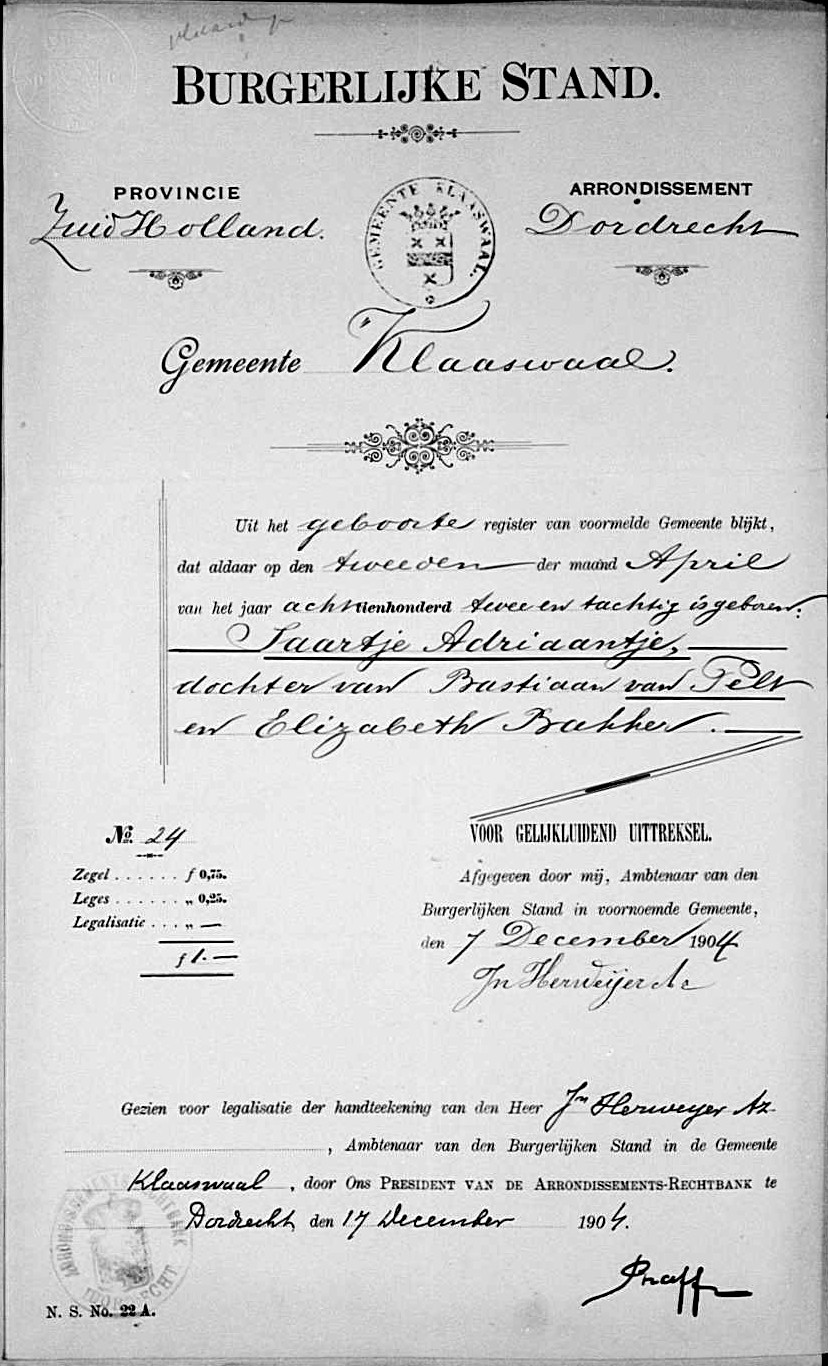 BURGERLIJKE STAND.
PROVINCIE
Zuid Holland.
GEMEENTE KLAASWAAL.
ARRONDISSEMENT
Dordrecht
Gemeente Klaaswaal.
Uit het geboorte register van voormelde Gemeente blijkt,
dat aldaar op den tweeden der maand April
van het jaar achttienhonderd twee en tachtig is geboren:
Saartje Adriaantje,
dochter van Bastiaan van Pelt
en Elizabeth Bakker.
No. 24
Zegel . . . . . . f 0,75.
Leges . . . . . . „ 0,25.
Legalisatie . . . „ —
f 1.—
VOOR GELIJKLUIDEND UITTREKSEL.
Afgegeven door mij, Ambtenaar van den
Burgerlijken Stand in voornoemde Gemeente,
den 7 December 1904
Jn Herweijer Az
Gezien voor legalisatie der handteekening van den Heer Jn Herweyer Az.
, Ambtenaar van den Burgerlijken Stand in de Gemeente
Klaaswaal, door Ons PRESIDENT VAN DE ARRONDISSEMENTS-RECHTBANK te
Dordrecht, den 17 December 1904.
ARRONDISSEMENTS RECHTBANK DORDRECHT
N. S. No. 22 A.